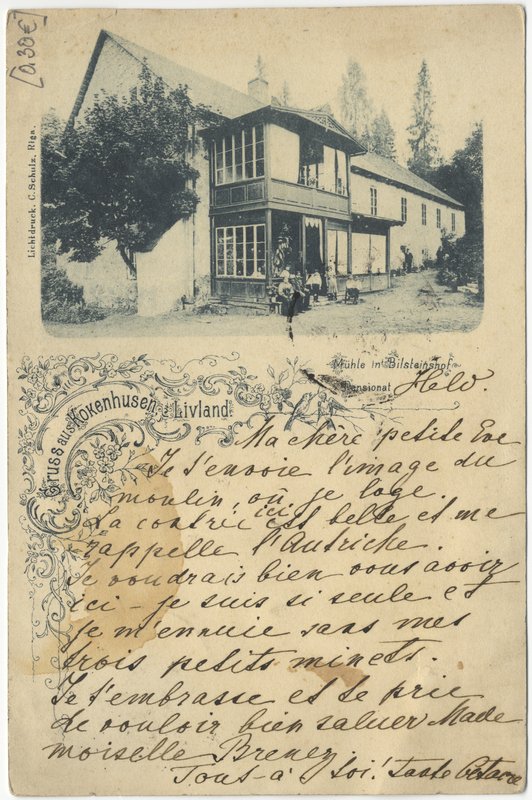 [0,30€]
Lichtdruck. C. Schulz, Riga.
Mühle in Bilsteinshof
Pensionat Held.
Gruss aus Kokenhusen Livland
Ma chère petite Eve
Je t'envoie l'image du
moulin, où je loge.
La contrée ici est belle et me
rappelle l'Autriche.
Je voudrais bien vous avoir
ici – je suis si seule et
je m'ennuie sans mes
trois petits minets.
Je t'embrasse et te prie
de vouloir bien saluer Made
moiselle
Tout-à toi! tante